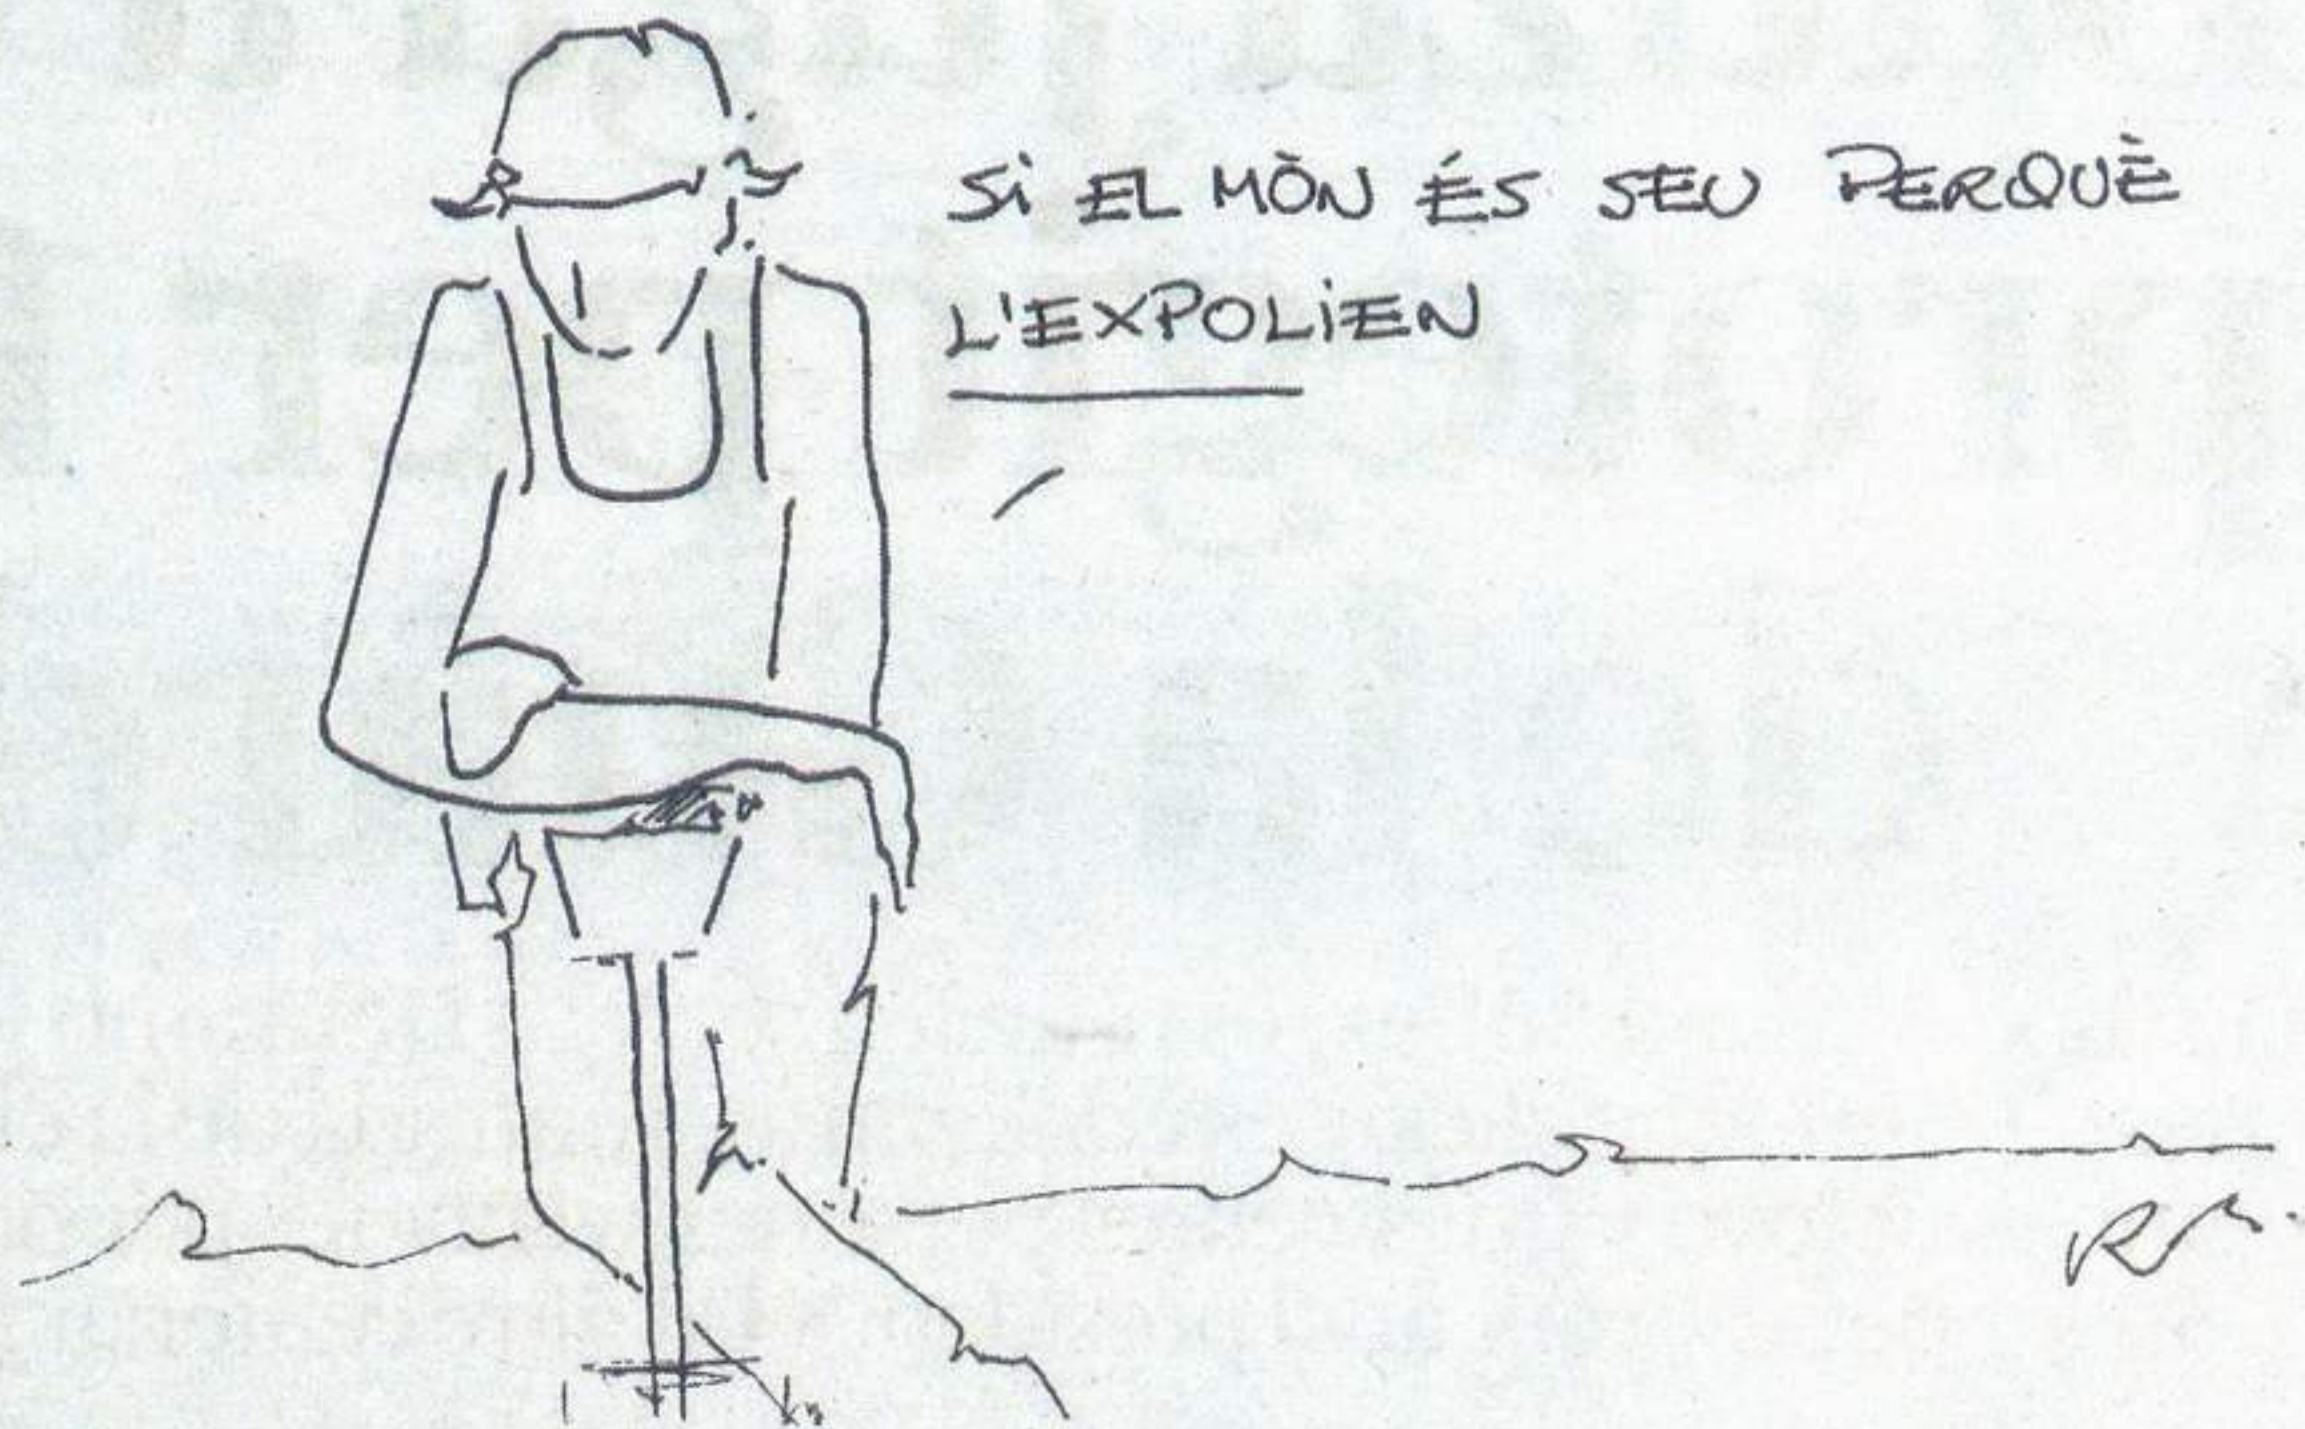 Si EL MÒN ÉS SEU PERQUÈ
L'EXPOLiEN